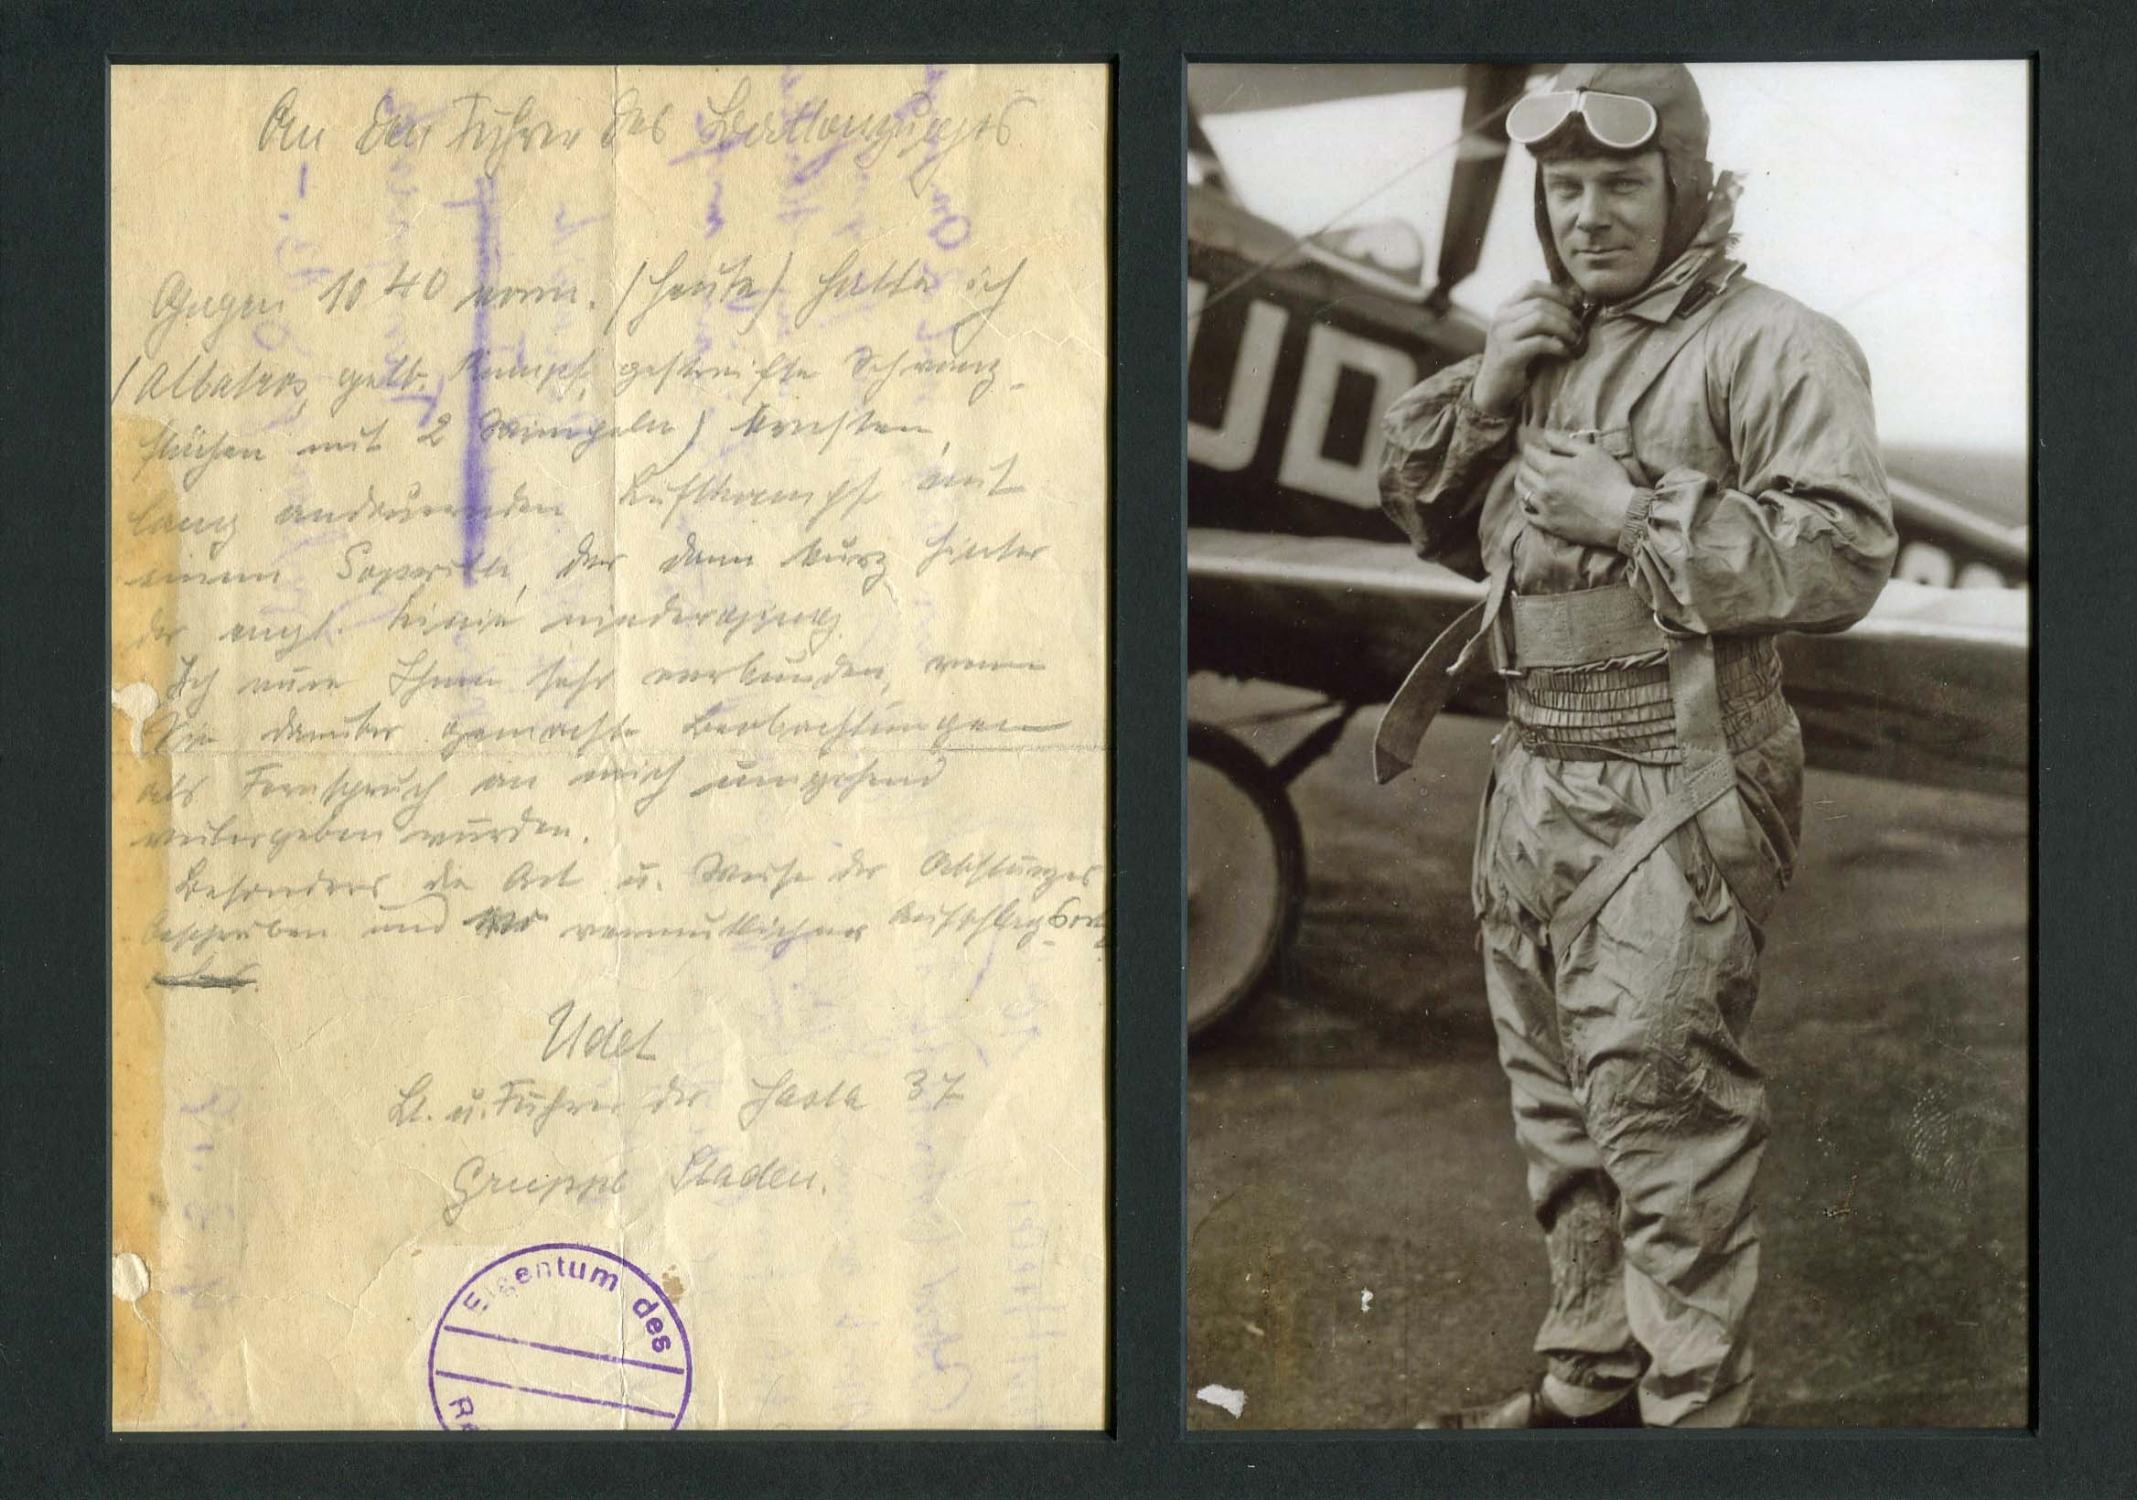 An den Führer des Ballonzuges
Gegen 10 40 vorm. (heute) hatte ich
(Albatros, gelb. Rumpf, gestreifte Schwanz-
flächen mit 2 Wimpeln) ernsten,
lang andauernden Luftkampf mit
einem Sopwith, der dann kurz hinter
der engl. Linie niederging.
Ich wäre Ihnen sehr verbunden, wenn
Sie darüber gemachte Beobachtungen
als Fernspruch an mich umgehend
weitergeben würden.
Besonders die Art u. Weise des Absturzes
beschreiben und vermutlichen Aufschlagsort
Udet
Lt. u. Führer der Jasta 37
Gruppe Staden.
Eigentum des
UD